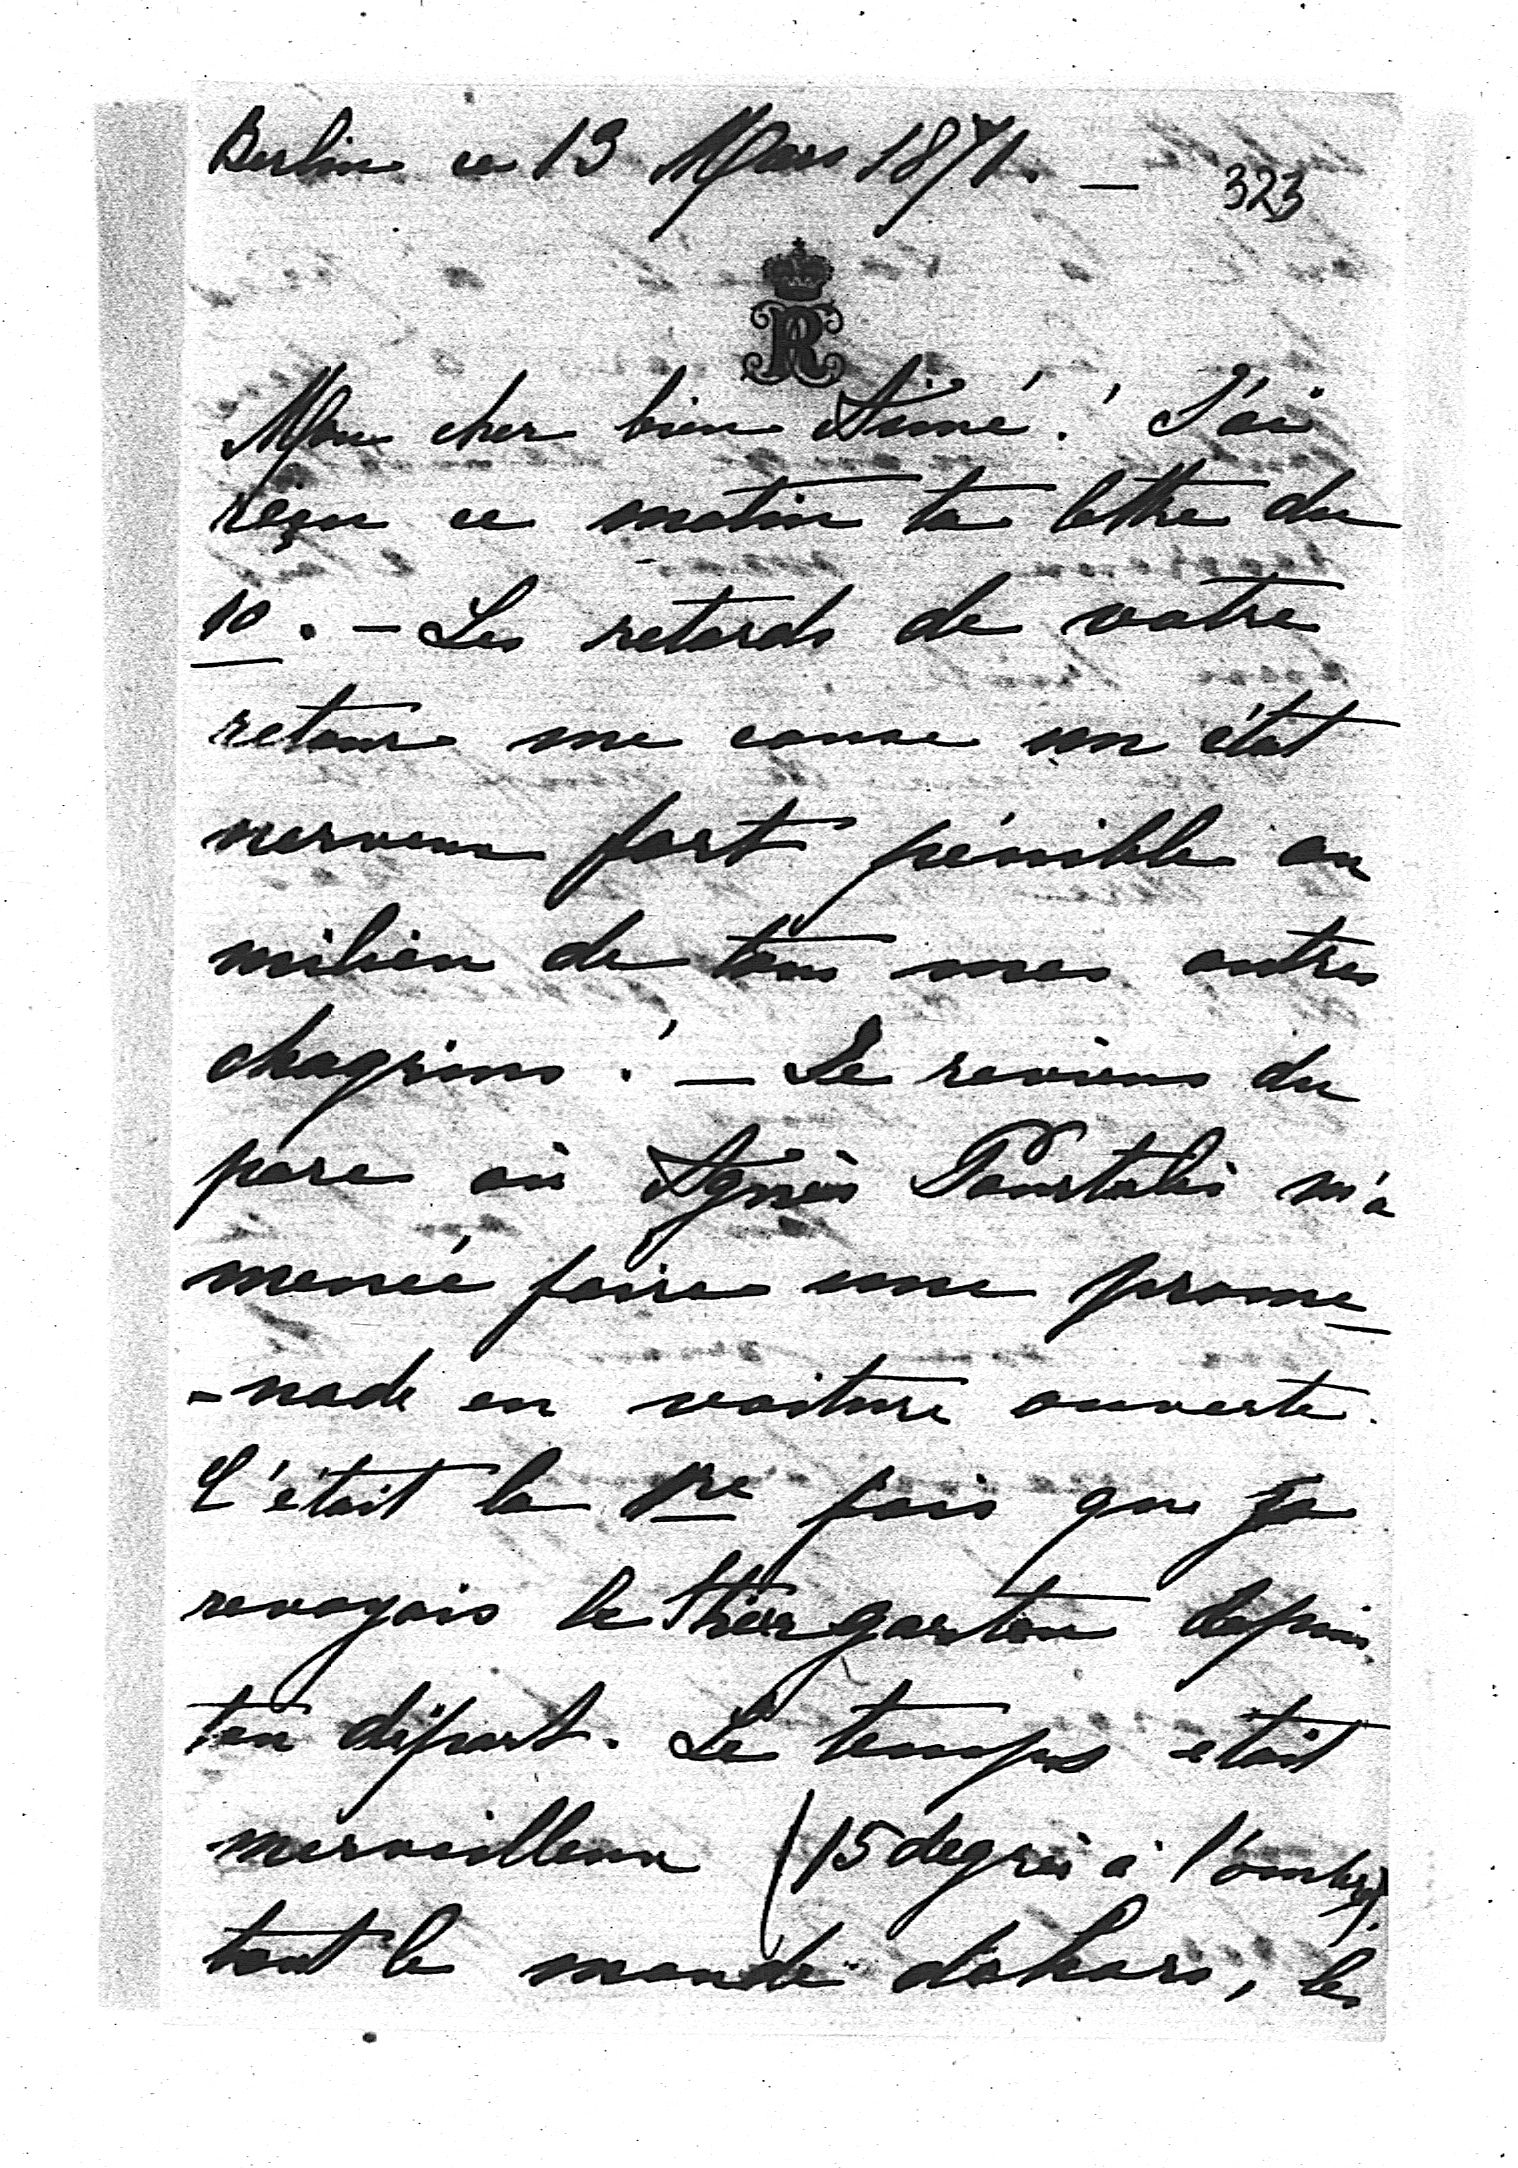 Berlin ce 13 Mars 1871. —
323
R
Mon cher bien Aimé! J'ai
reçu ce matin ta lettre du
10. — Les retards de votre
retour me cause un état
nerveux fort pénible au
milieu de tous mes autres
chagrins! — Je reviens du
parc où Agnès Pourtalès m'a
menée faire une prome
-nade en voiture ouverte.
C'était la 1re fois que je
revoyais le Thiergarten depuis
ton départ. Le temps était
merveilleux (15 degrès à l'ombre).
tout le monde dehors, les